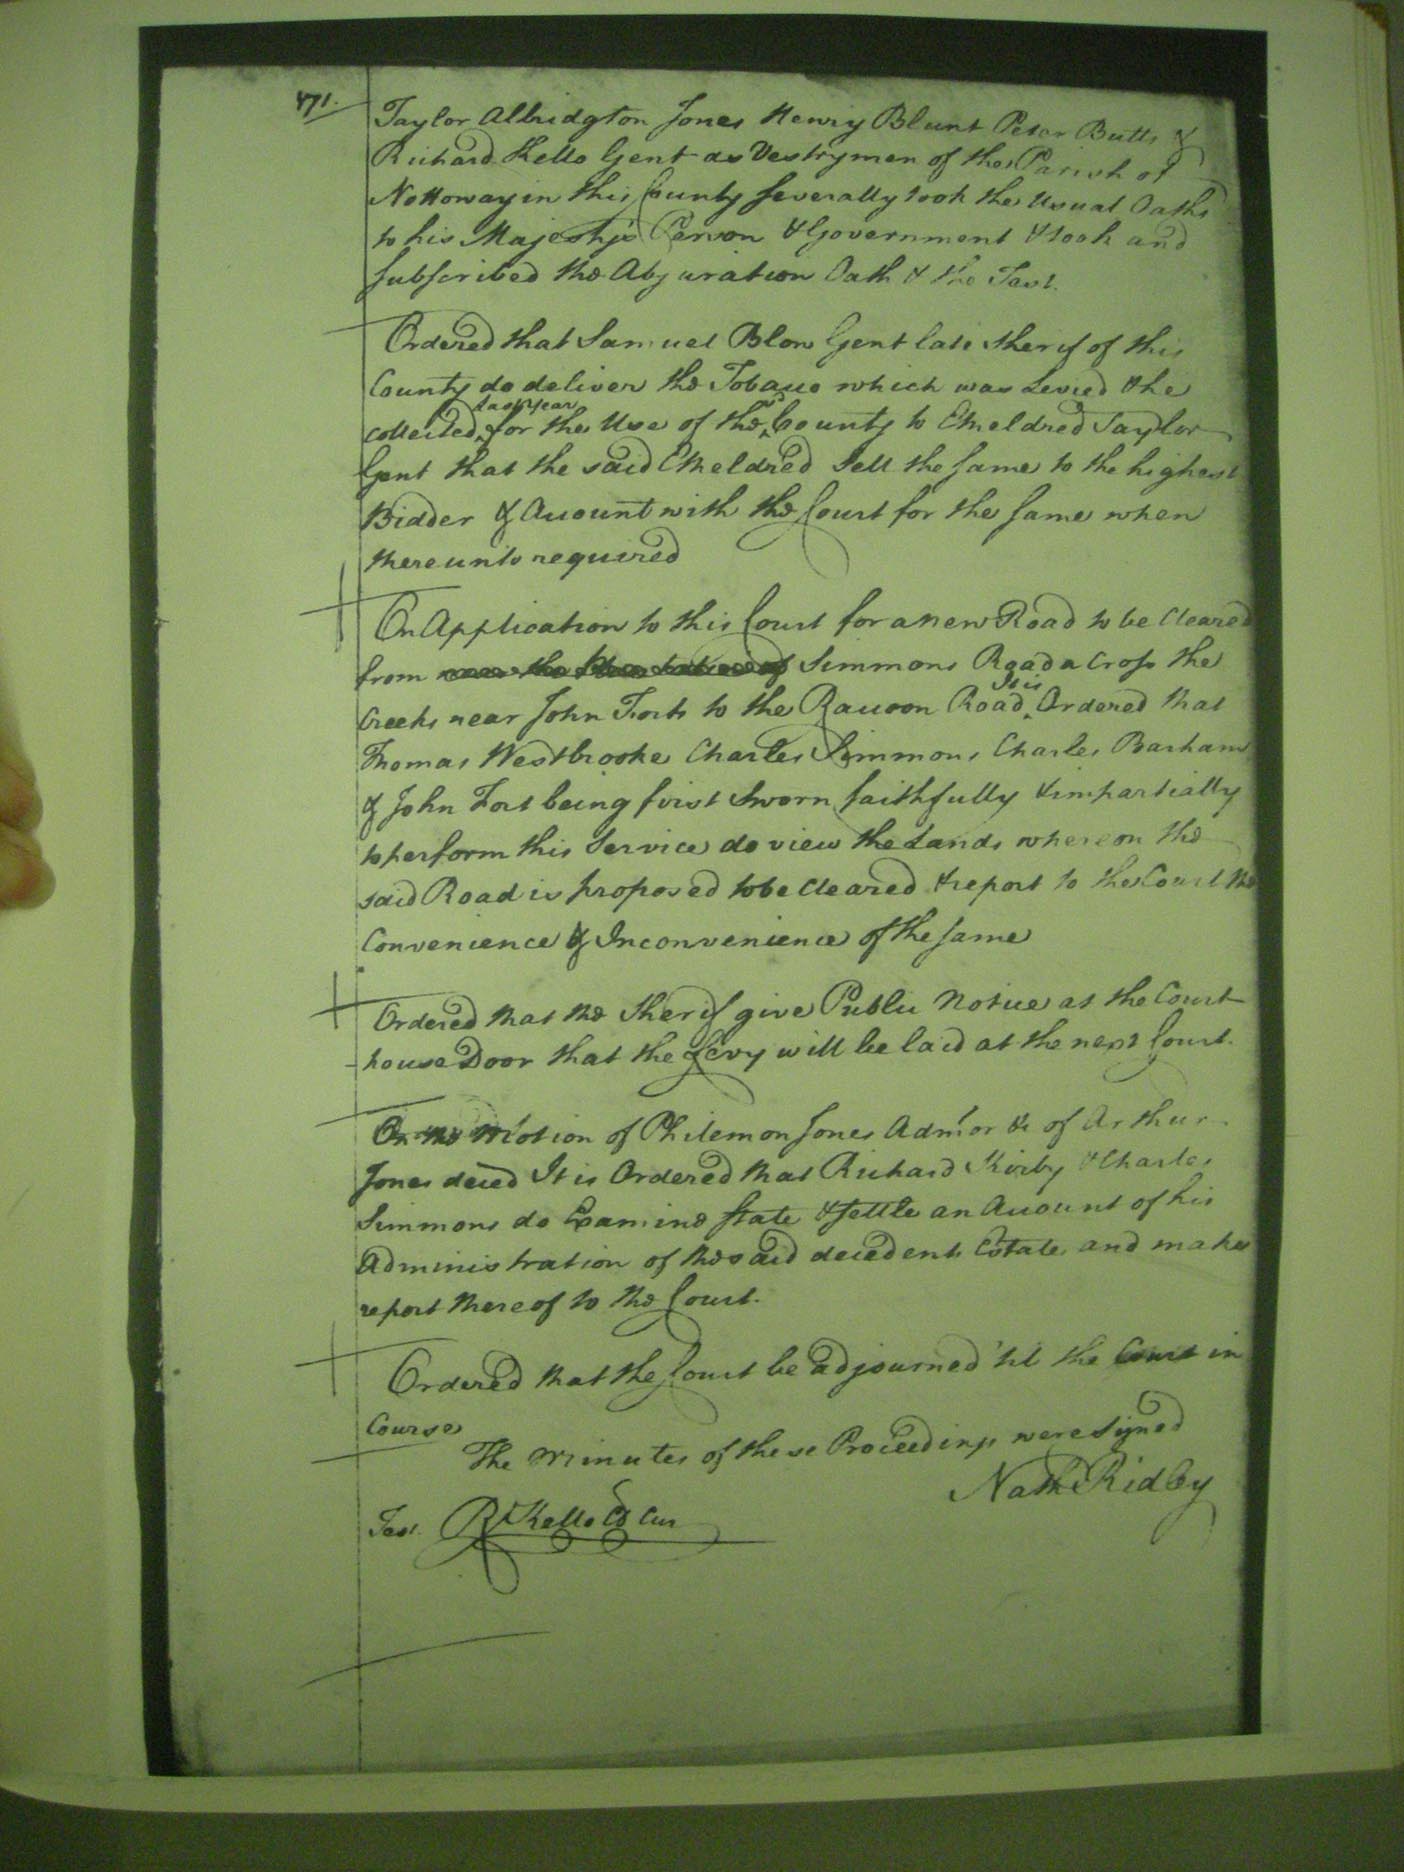 471.
Taylor Albridgton Jones Henry Blunt Peter Butts &
Richard Kello Gent as Vestrymen of the Parish of
Nottoway in this County severally took the Usual Oaths
to his Majesty's Person & Government & took and
subscribed the Abjuration Oath & the Test.
Ordered that Samuel Blow Gent late Sherif of this
County do deliver the Tobacco which was Levied & he
collected last year for the Use of the sd County to Etheldred Taylor
Gent that the said Etheldred Sell the same to the highest
Bidder & Account with the Court for the same when
thereunto required
On Application to this Court for a new Road to be Cleared
from near the Plantation of Simmons Road a Cross the
Creeks near John Forts to the Raccoon Road, It is Ordered that
Thomas Westbrooke Charles Simmons Charles Barham
& John Fort being first Sworn faithfully & impartially
to perform this Service do view the Lands whereon the
said Road is proposed to be Cleared & report to the Court the
Convenience & Inconvenience of the same
Ordered that the Sherif give Public Notice at the Court
house Door that the Levy will be laid at the next Court.
On the Motion of Philemon Jones Admor &c of Arthur
Jones deced It is Ordered that Richard Kirby & Charles
Simmons do Examine State & settle an Account of his
Administration of the said decedents Estate and make
report thereof to the Court.
Ordered that the Court be adjourned 'til the Court in
Course
The Minutes of these Proceedings were Signed
Nath Ridley
Test. R Kello Cl Cur